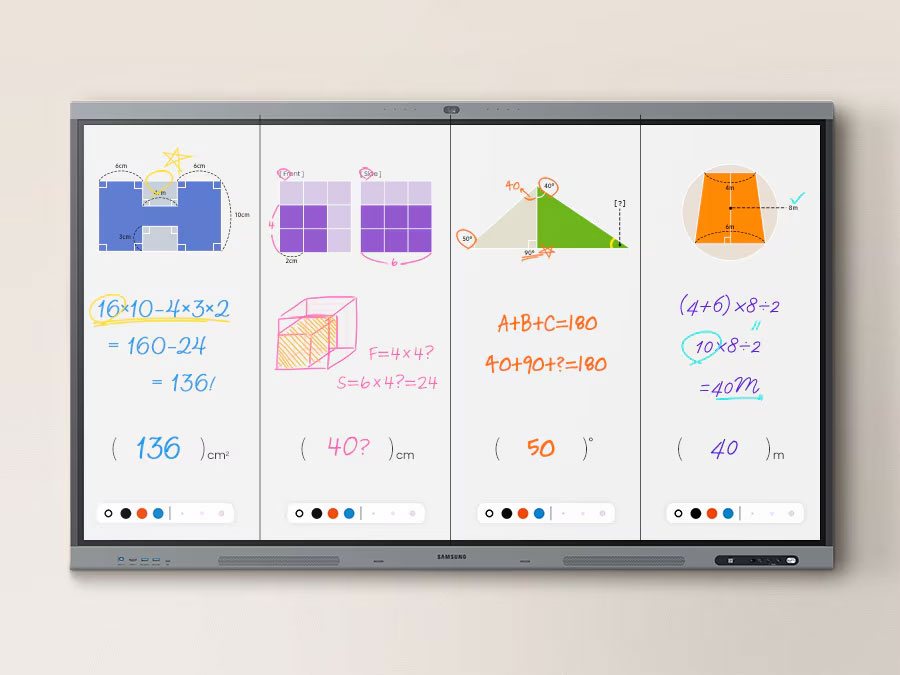 6cm
6cm
4cm
10cm
3cm
16×10-4×3×2
= 160-24
= 136!
( 136 ) cm²
[Front]
[Side]
4
2cm
6
F=4×4?
S=6×4?=24
( 40? ) cm
40
40°
[?]
50°
90°
A+B+C=180
40+90+?=180
( 50 )°
4m
8m
6m
(4+6)×8÷2
10×8÷2
=40m
( 40 ) m
SAMSUNG